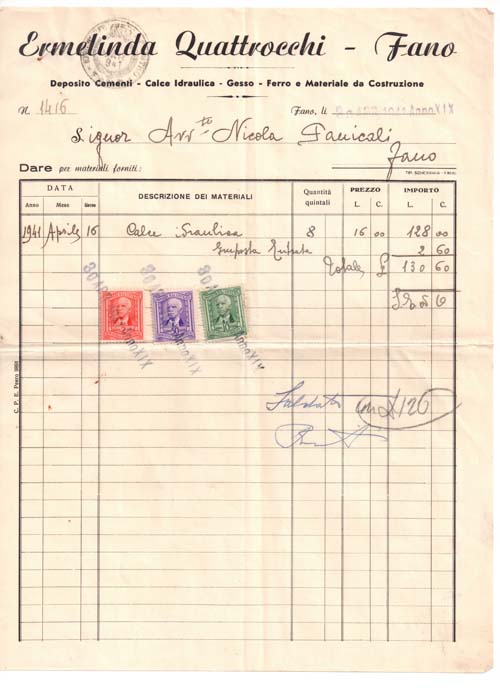 Ermelinda Quattrocchi - Fano
Deposito Cementi - Calce Idraulica - Gesso - Ferro e Materiale da Costruzione
N. 1416 Fano, li
Signor Nicola
Fano
Dare per materiali forniti:
DATA DESCRIZIONE DEI MATERIALI Quantità quintali PREZZO IMPORTO
Anno Mese Giorno L. C. L. C.
1941 Aprile 16 Calce idraulica 8 16 00 128 00
Imposta Entrata 2 60
Totale £ 130 60
Saldato £126